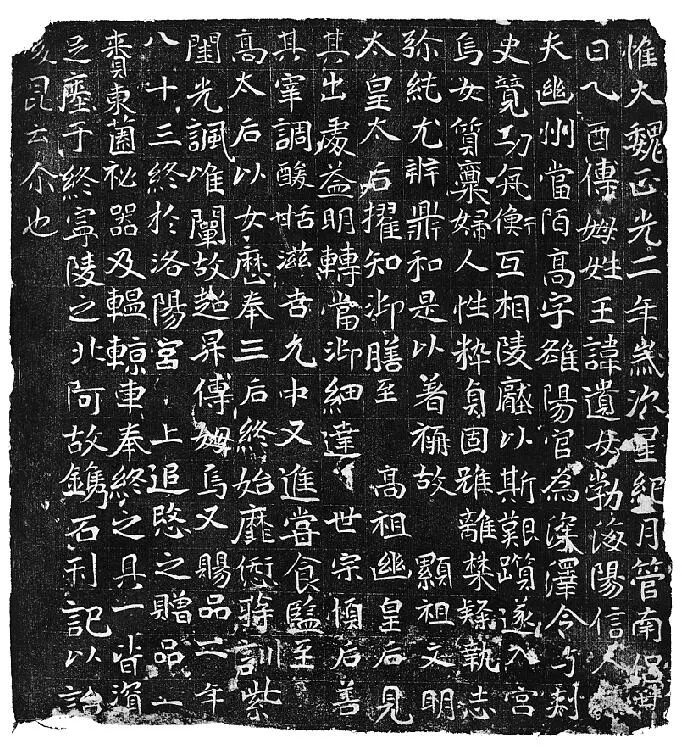 惟大魏正光二年歲次星紀月管南呂廿
日乙酉傅姆姓王諱遺女勃海陽信人
夫幽州當陌高字雒陽官為深澤令与刺
史競功亢衡互相陵壓以斯艱躓遂入宮
焉女質稟婦人性粹貞固雖離禁隸執志
弥純尤辨鼎和是以著稱故 顯祖文明
太皇太后擢知御膳至 高祖幽皇后見
其出處益明轉當御細達 世宗順后善
其宰調酸甜滋味允中又進嘗食監至
高太后以女歷奉三后終始靡愆蔣訓紫
閨光諷唯闡故超昇傅姆焉又賜品二年
八十三終於洛陽宮 上追愍之贈品一
賚東園祕器及轀輬車奉終之具一皆資
足瘞于終寧陵之北阿故鐫石刊記以詒
後昆云尒也